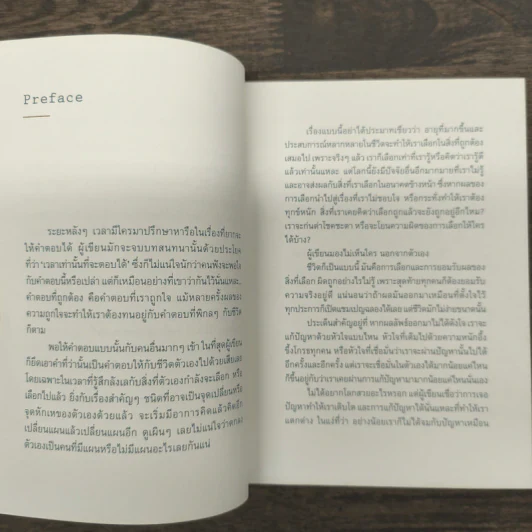 Preface
ระยะหลังๆ เวลามีใครมาปรึกษาหารือในเรื่องที่ยากจะ
ให้คำตอบได้ ผู้เขียนมักจะจบบทสนทนานั้นด้วยประโยค
ที่ว่า'เวลาเท่านั้นที่จะตอบได้' ซึ่งก็ไม่แน่ใจนักว่าคนฟังจะพอใจ
กับคำตอบนี้หรือเปล่า แต่ก็เหมือนอย่างที่เขาว่ากันไว้นั่นแหละ
คำตอบที่ถูกต้อง คือคำตอบที่เราถูกใจ แม้หลายครั้งผลของ
ความถูกใจจะทำให้เราต้องทนอยู่กับความที่พิกลๆ กับชีวิต
ก็ตาม
พอให้คำตอบแบบนั้นกับคนอื่นมากๆ เข้า ในที่สุดผู้เขียน
ก็ยึดเอาคำที่ว่านั้นเป็นคำตอบให้กับชีวิตตัวเองไปด้วยเสียเลย
โดยเฉพาะในเวลาที่รู้สึกลังเลกับสิ่งที่ตัวเองกำลังจะเลือก หรือ
เลือกไปแล้ว ยิ่งกับเรื่องสำคัญๆ ชนิดที่อาจเป็นจุดเปลี่ยนหรือ
จุดหักเหของตัวเองด้วยแล้ว จะเริ่มมีอาการคิดแล้วคิดอีก
เปลี่ยนแผนแล้วเปลี่ยนแผนอีก ดูเผินๆ เลยไม่แน่ใจว่าตกลง
ตัวเองเป็นคนที่มีแผนหรือไม่มีแผนอะไรเลยกันแน่
เรื่องแบบนี้อย่าได้ประมาทเชียวว่า อายุที่มากขึ้นและ
ประสบการณ์หลากหลายในชีวิตจะทำให้เราเลือกในสิ่งที่ถูกต้อง
เสมอไป เพราะจริงๆ แล้ว เราก็เลือกเท่าที่เรารู้หรือคิดว่าเรารู้ดี
แล้วเท่านั้นแหละ แต่โลกนี้ยังมีปัจจัยอื่นอีกมากมายที่เราไม่รู้
และอาจส่งผลกับสิ่งที่เราเลือกในอนาคตข้างหน้า ซึ่งหากผลของ
การเลือกนำไปสู่เรื่องที่เราไม่ชอบใจ หรือกระทั่งทำให้เราต้อง
ทุกข์หนัก สิ่งที่เราเคยคิดว่าเลือกถูกแล้วจะยังถูกอยู่อีกไหม?
เราจะก่นด่าโชคชะตา หรือจะโยนความผิดของการเลือกให้ใคร
ได้บ้าง?
ผู้เขียนมองไม่เห็นใคร นอกจากตัวเอง
ชีวิตก็เป็นแบบนี้ มันคือการเลือกและการยอมรับผลของ
สิ่งที่เลือก ผิดถูกอย่างไรไม่รู้ เพราะสุดท้ายทุกคนก็ต้องยอมรับ
ความจริงอยู่ดี แน่นอนว่าถ้าผลมันออกมาเหมือนที่ตั้งใจไว้
ทุกประการก็เปิดแชมเปญฉลองได้เลย แต่ชีวิตมักไม่ง่ายขนาดนั้น
ประเด็นสำคัญอยู่ที่ หากผลลัพธ์ออกมาไม่ได้ดังใจ เราจะ
แก้ปัญหาด้วยหัวใจแบบไหน หัวใจที่เต็มไปด้วยความหนักอึ้ง
ขึ้งโกรธทุกคน หรือหัวใจที่เชื่อมั่นว่าเราจะผ่านปัญหานั้นไปได้
อีกครั้งและอีกครั้ง แต่เราจะเชื่อมั่นในตัวเองได้มากน้อยแค่ไหน
ก็ขึ้นอยู่กับว่าเราเคยผ่านการแก้ปัญหามามากน้อยแค่ไหนนั่นเอง
ไม่ได้อยากโลกสวยอะไรหรอก แต่ผู้เขียนเชื่อว่าการเจอ
ปัญหาทำให้เราเติบโต และการแก้ปัญหาได้นั่นแหละที่ทำให้เรา
แตกต่าง ในแง่ที่ว่า อย่างน้อยเราก็ไม่ได้จมกับปัญหาเหมือน